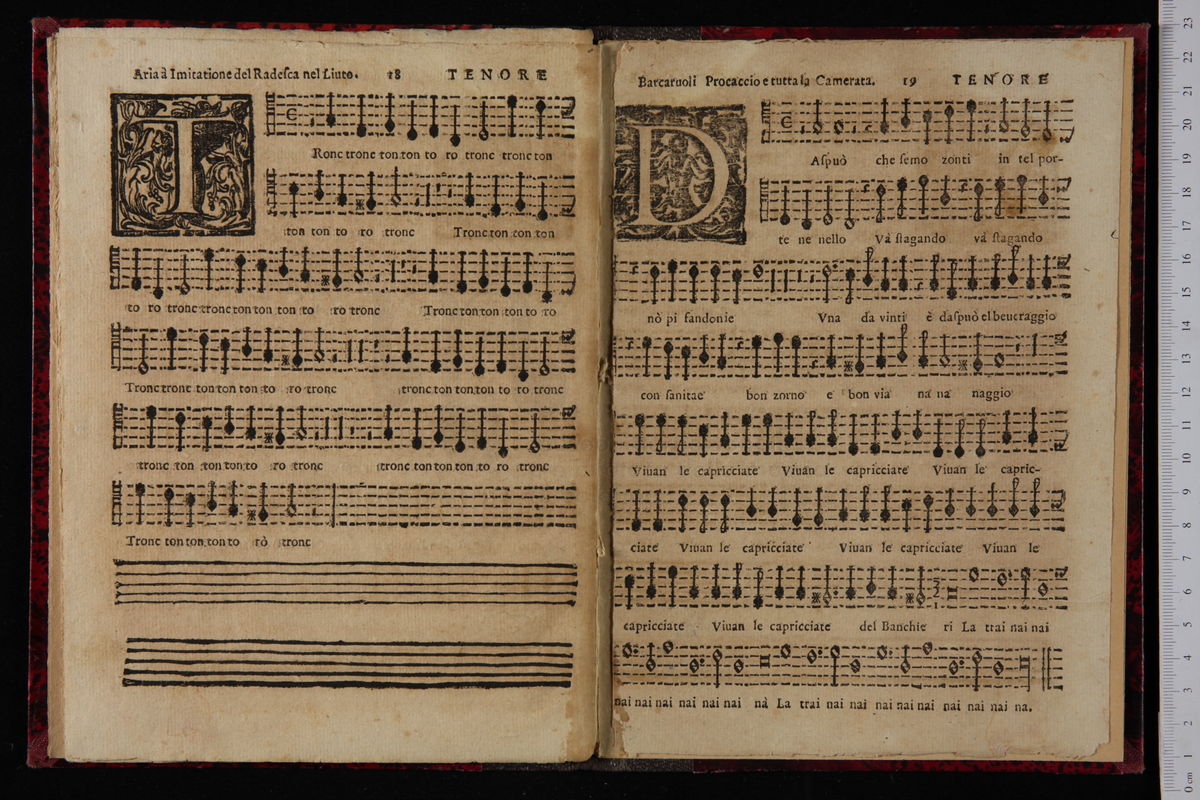 Aria à Imitatione del Radesca nel Liuto. 18 TENORE
T Ronc tronc ton ton to ro tronc tronc ton
ton ton to ro tronc Tronc ton ton ton
to ro tronc tronc ton ton ton to ro tronc Tronc ton ton ton to ro
Tronc tronc ton ton ton to ro tronc tronc ton ton ton to ro tronc
tronc ton ton ton to ro tronc tronc ton ton ton to ro tronc
Tronc ton ton ton to rò tronc
Barcaruoli Procaccio e tutta la Camerata. 19 TENORE
D Aſpuò che ſemo zonti in tel por-
te ne nello Và ſtagando và ſtagando
nò pi fandonie Vna da vinti è daſpuò el beueraggio
con ſanitae bon zorno e bon via na na naggio
Viuan le capricciate Viuan le capricciate Viuan le capric-
ciate Viuan le capricciate Viuan le capricciate Viuan le
capricciate Viuan le capricciate del Banchie ri La trai nai nai
nai nai nai nai nai nai nà La trai nai nai nai nai nai nai nai nai na.
23
22
21
20
19
18
17
16
15
14
13
12
11
10
9
8
7
6
5
4
3
2
1
0 cm